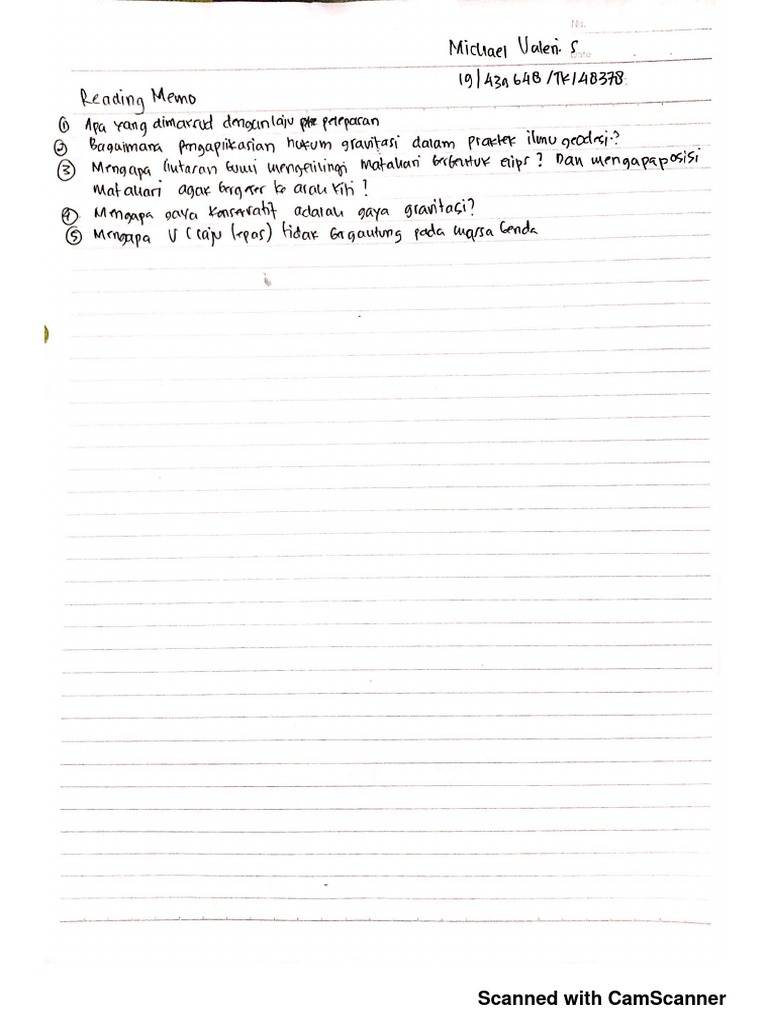 No.
Michael Valen. S
Date
19/439648/TK/48378
Reading Memo
① Apa yang dimaksud dengan laju pelepasan
② Bagaimana pengaplikasian hukum gravitasi dalam praktek ilmu geodesi.?
③ Mengapa lintaran bumi mengelilingi matahari berbentuk elips? Dan mengapa posisi
matahari agak bergeser ke arah kiri?
④ Mengapa gaya konservatif adalah gaya gravitasi?
⑤ Mengapa V (laju lepas) tidak bergantung pada massa benda
Scanned with CamScanner